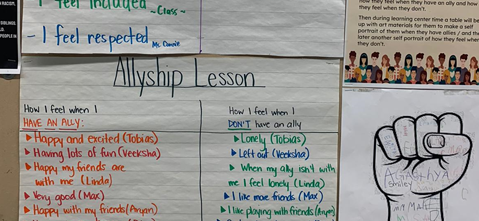 RACISM,
SIBLINGS,
PEOPLE IN
I feel included
~Class~
- I feel respected
Ms. Connie
they feel when they have an ally and how
they feel when they don't.
Then during learning center time a table will be
up with art materials for them to make a self
portrait of them when they have allies / and the
later another self portrait of how they feel when
they don't.
Allyship Lesson
How I feel when I
HAVE AN ALLY:
▸ Happy and excited (Tobias)
▸ Having lots of fun (Veeksha)
▸ Happy my friends are
with me (Linda)
▸ Very good (Max)
▸ Happy with my friends (Aryan)
How I feel when I
DON'T have an ally
▸ Lonely (Tobias)
▸ Left out (Veeksha)
▸ When my ally isn't with
me I feel lonely (Linda)
▸ I like more friends (Max)
▸ I like playing with friends (Aryan)